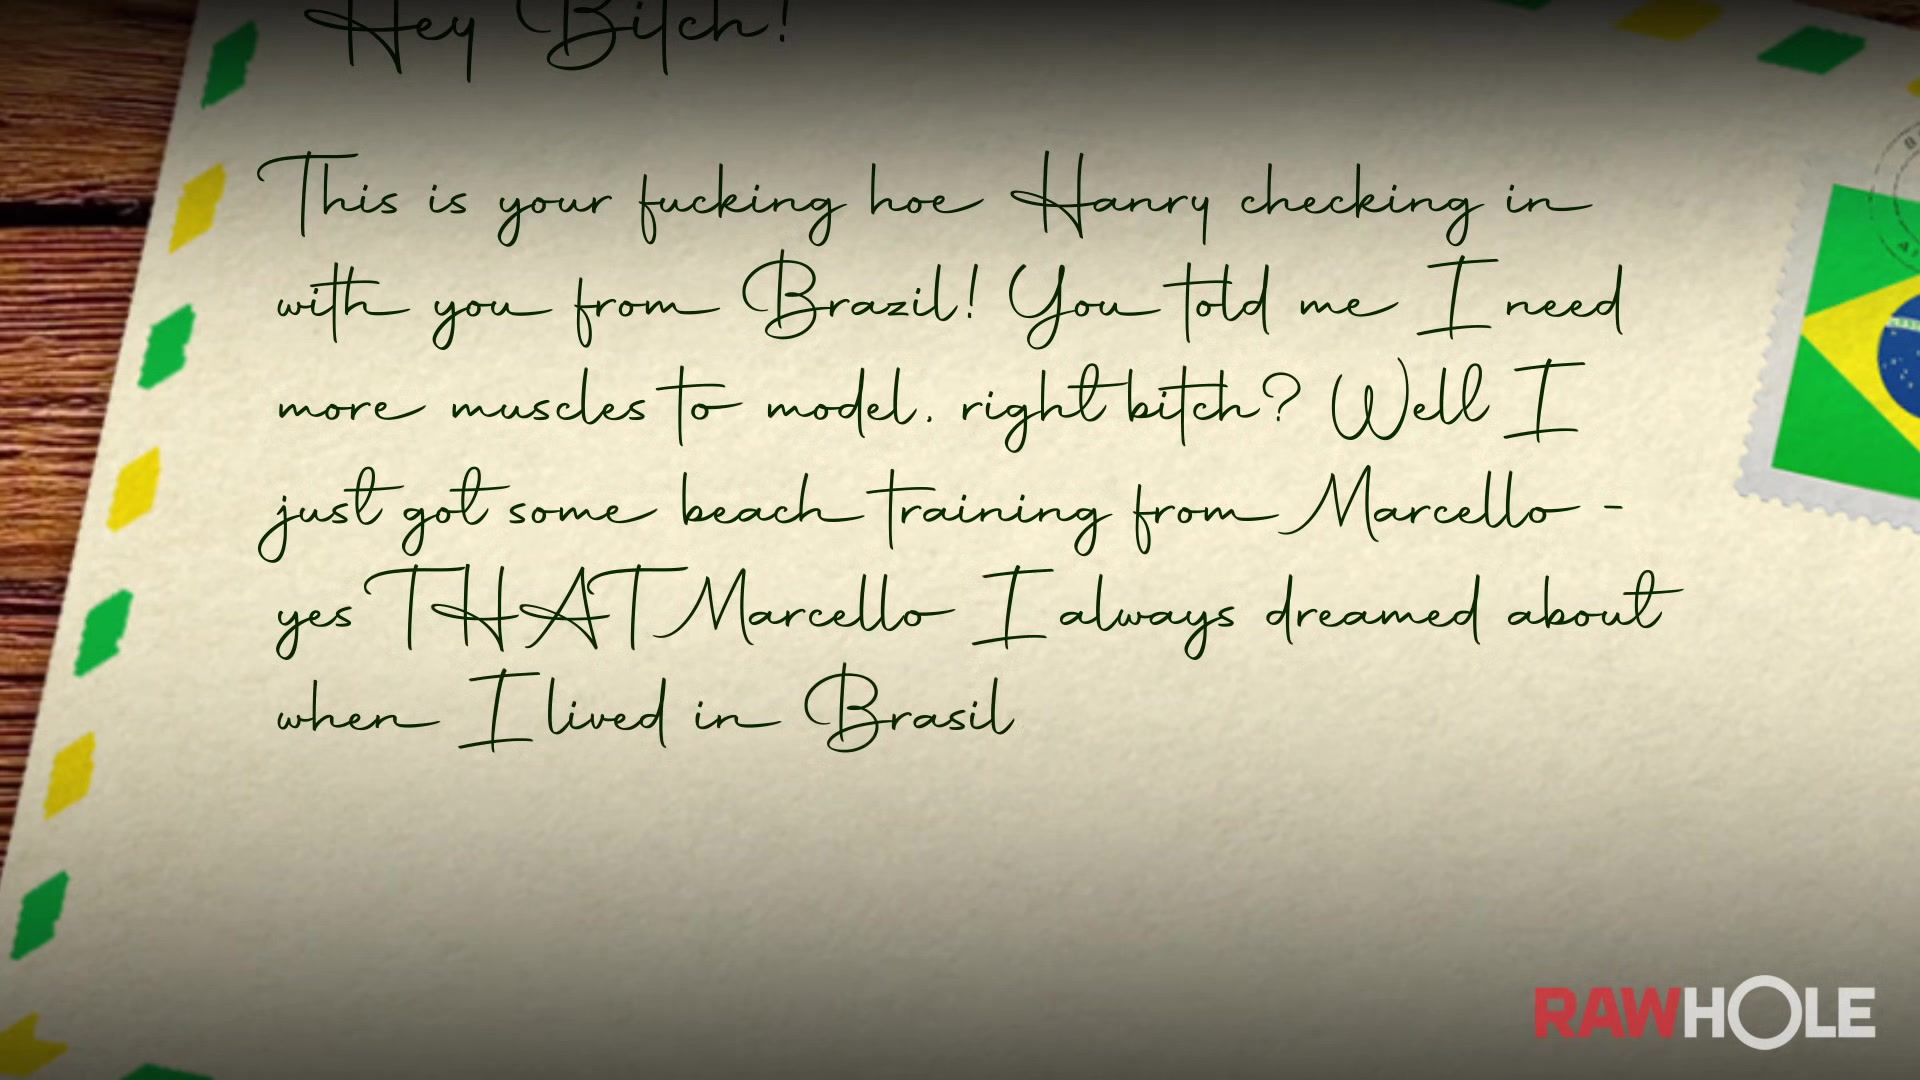 Hey Bitch!
This is your fucking hoe Hanry checking in
with you from Brazil! You told me I need
more muscles to model, right bitch? Well I
just got some beach training from Marcello -
yes THAT Marcello I always dreamed about
when I lived in Brasil
RAWHOLE